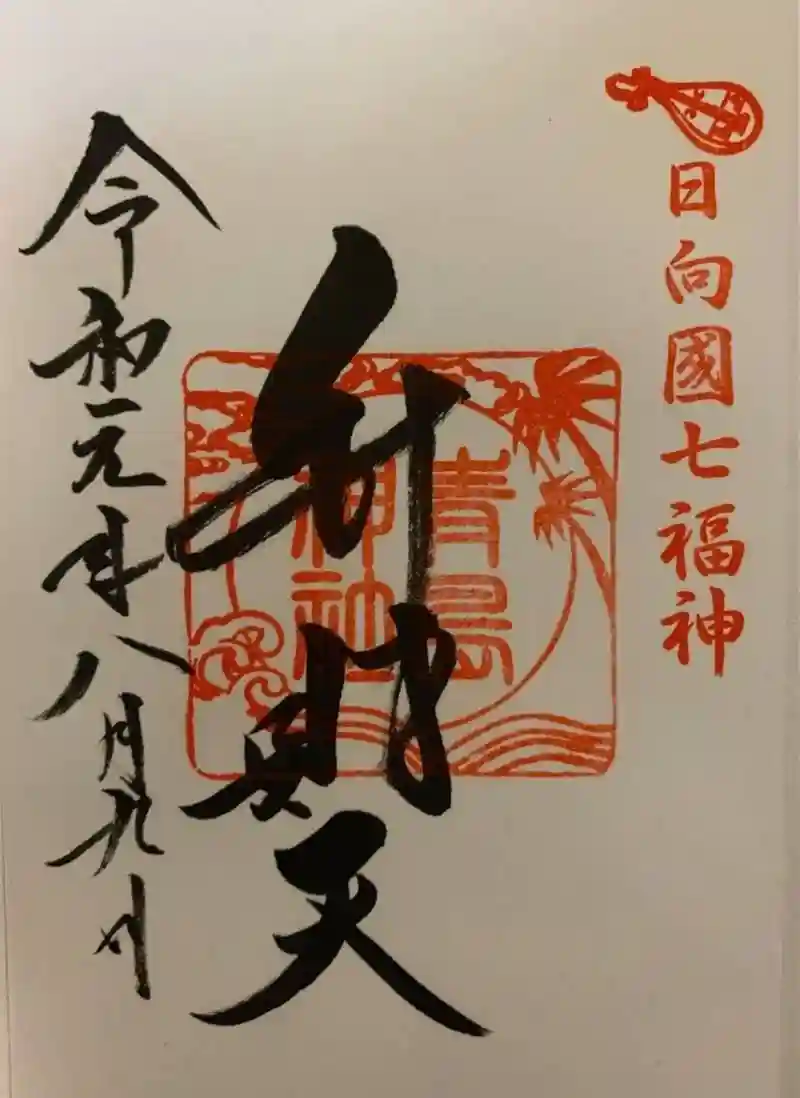 日向國七福神
青島
神社
弁財天
令和元年八月九日